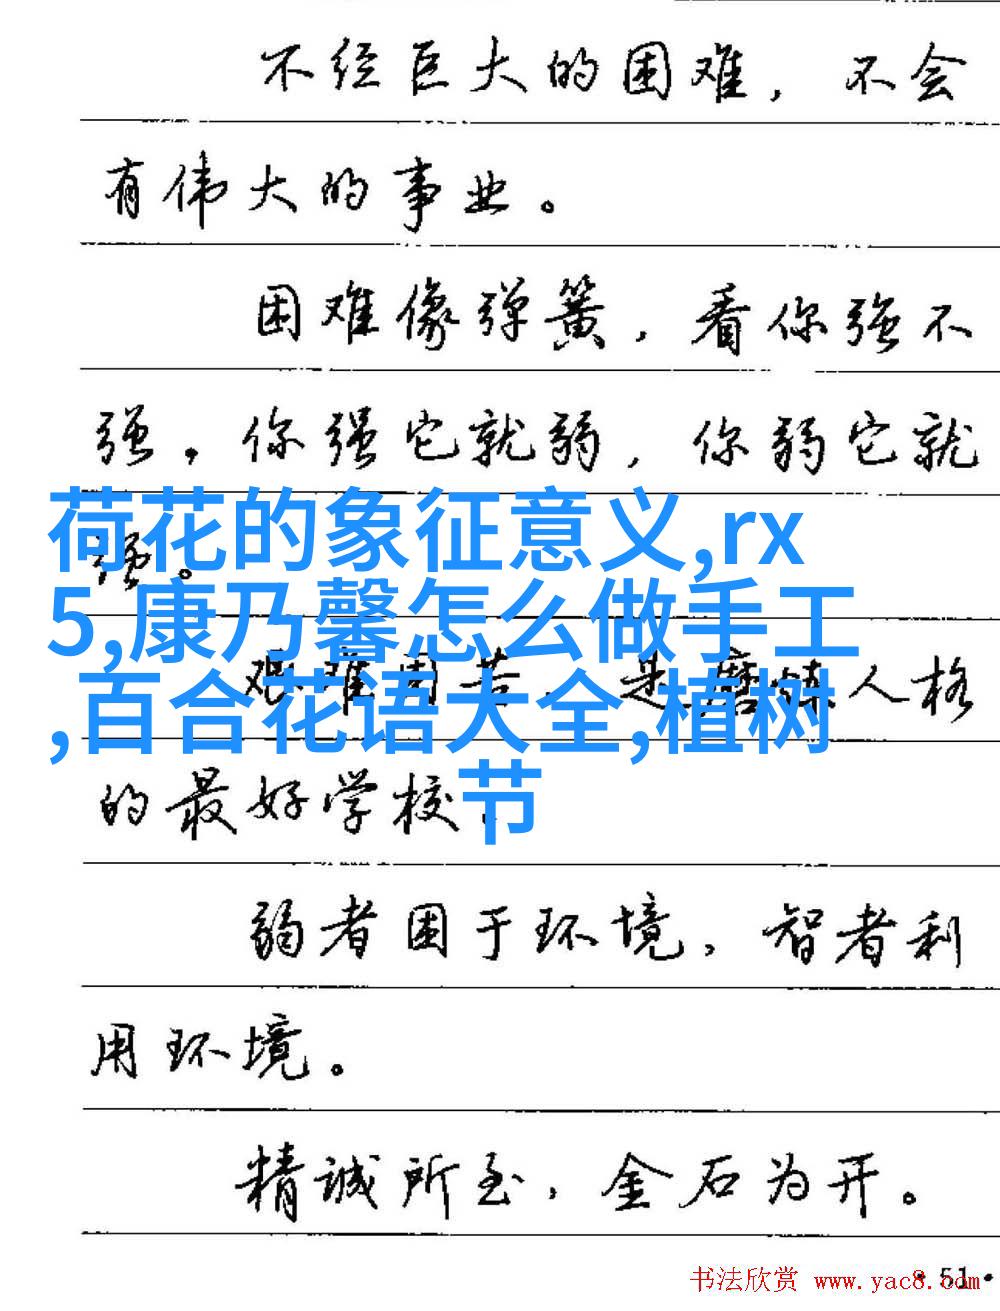 不经巨大的困难，不会
有伟大的事业。
困难像弹簧，看你强不
强。你强它就弱，你弱它就
强。
荷花的象征意义,rx
5,康乃馨怎么做手工
,百合花语大全,植树
节
艰难困苦，是磨炼人格
的最好学校。
弱者困于环境，智者利
用环境。
精诚所至，金石为开。
·51·
书法欣赏 www.yac8.com